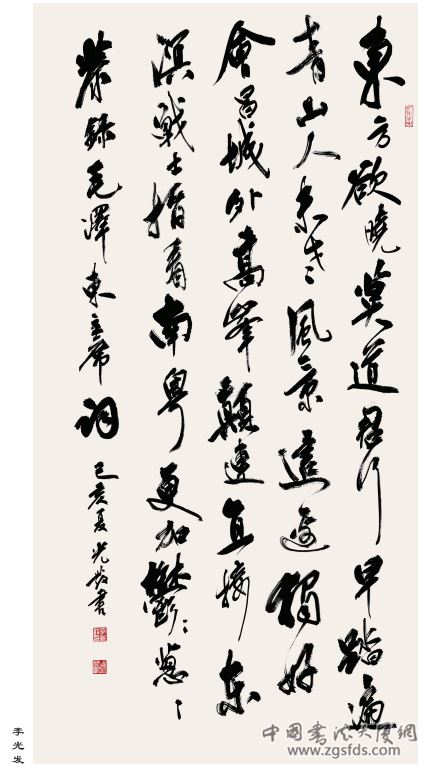 東方欲曉莫道君行早踏遍
青山人未老風景這邊獨好
會昌城外高峯顛連直接東
溟戰士指看南粵更加鬱〻蔥〻
恭録毛澤東主席詞
己亥夏光發書
李光发
中国書法大厦網
www.zgsfds.com